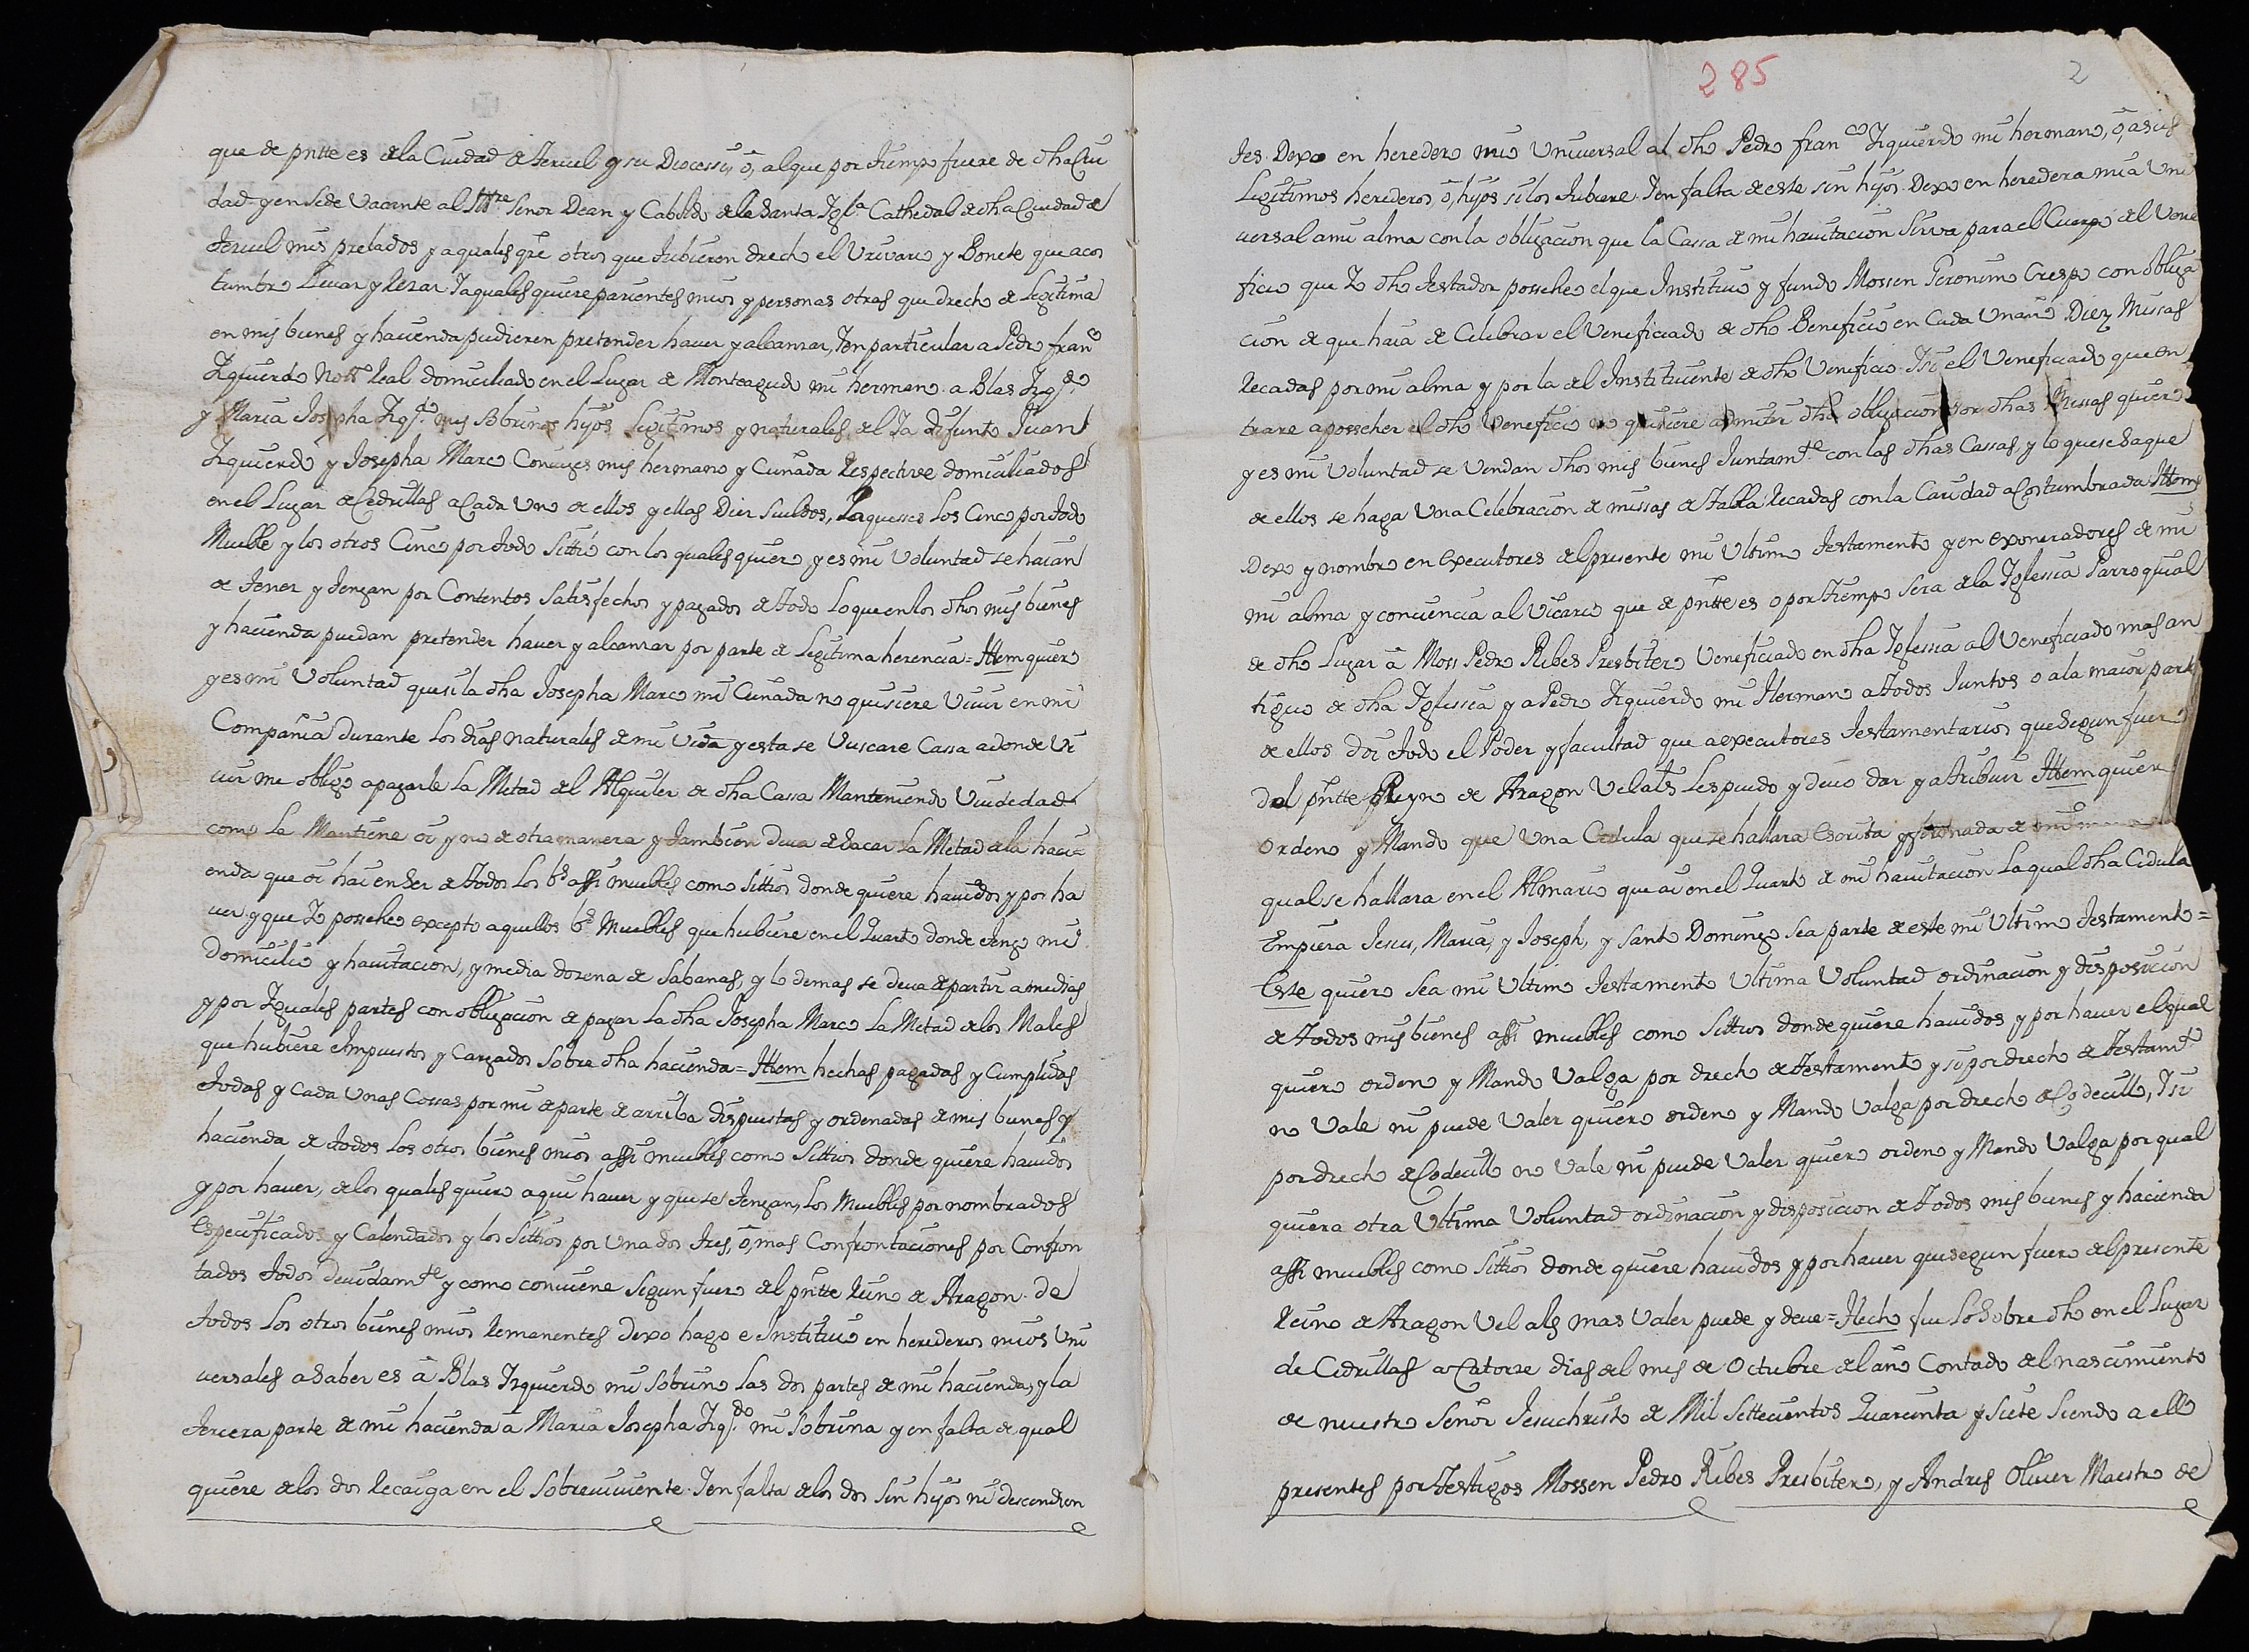 que de pñtte es de la Ciudad de Teruel y su Diocessis, ô, al que por tiempo fuere de dha Ciu
dad y en Sede Vacante al Illtre Senor Dean y Cabildo de la Santa Igla Cathedral de dha Ciudad de
Teruel mis prelados y a qualesqre otros que tubieren drecho el Brivario y Bonete que acos
tumbro llevar y Rezar Y a qualesquiere parientes mios y personas otras que drecho de Legitima
en mis bienes y hacienda pudieren pretender haver y alcanzar, Y en particular a Pedro Franco
Izquierdo Nottº Real domiciliado en el Lugar de Monteagudo mi hermano a Blas Izqdo
y Maria Josepha Izqdo mis sobrinos hijos Legitimos y naturales del Ya difunto Juan
Izquierdo y Josepha Marco Conuges mis hermano y Cuñada Respective domiciliados
en el Lugar de Cedrillas a Cada Uno de ellos y ellas Diez Sueldos, Jaquesses Los Cinco por todo
Mueble y los otros Cinco por todo Sittio con los quales quiero y es mi Voluntad se haian
de tener y tengan por Contentos Satisfechos y pagados de todo Lo que en los dhos mis bienes
y hacienda puedan pretender haver y alcanzar por parte de Legitima herencia = Ittem quiero
y es mi Voluntad que si la dha Josepha Marco mi Cuñada no quisiere Vivir en mi
Compañia durante Los dias naturales de mi Vida y esta se Vuscare Cassa adonde Vi
vir me obligo a pagarle La Metad del Alquiler de dha Cassa Manteniendo Viudedad
como La Mantiene oi y no de otra manera y tambien deva de sacar La Metad de la haci=
enda que oi hai en ser de todos Los bs assi muebles como Sittios donde quiere havidos y por ha
ver y que Yo posseheo excepto aquellos bs Muebles que hubiere en el Quarto donde tengo mi
domicilio y havitacion, y media dozena de Sabanas, y lo demas se deva de partir a medias
y por Iguales partes con obligacion de pagar La dha Josepha Marco La Metad de los Males
que hubiere Impuestos y Cargados Sobre dha hacienda = Ittem hechas pagadas y Cumplidas
todas y Cada Unas Cossas por mi de parte de arriba dispuestas y ordenadas de mis bienes y
hacienda de todos Los otros bienes mios assi muebles como Sittios donde quiere havidos
y por haver, de los quales quiero aqui haver y que se tengan, Los Muebles por nombrados
Especificados y Calendados y los Sittios por Una dos tres, ô, mas Confrontaciones por Confron
tados todos devidamte y como conviene Segun fuero del pñtte Reino de Aragon. de
todos Los otros bienes mios Remanentes dexo hago e Instituio en herederos mios Uni
versales a Saber es â Blas Izquierdo mi Sobrino Las dos partes de mi hacienda, y la
tercera parte de mi hacienda â Maria Josepha Izqdo mi Sobrina y en falta de qual
quiere de los dos Recaiga en el Sobreviviente. Y en falta de los dos Sin hijos ni descendien
285
2
tes. Dexo en heredero mio Universal al dho Pedro Franco Izquierdo mi hermano, ô, a sus
Legitimos herederos ô, hijos si los tubiere. Y en falta de este sin hijos. Dexo en heredera mia Uni
versal a mi alma con la obligacion que La Cassa de mi havitacion Sirva para el Cuerpo del Vene
ficio que Yo dho testador posseheo el que Instituio y fundo Mossen Geronimo Crespo con obliga
cion de que haia de Celebrar el Veneficiado de dho Beneficio en Cada Un año Diez Missas
Recadas por mi alma y por la del Instituente de dho Veneficio. Y si el Veneficiado que en
trare a posseher el dho Veneficio no quisiere admitir dha obligacion por dhas Missas quiero
y es mi Voluntad se Vendan dhos mis bienes Juntamte con las dhas Cassas, y lo que se saque
de ellos se haga Una Celebracion de missas de tabla Recadas con la Caridad acostumbrada Ittem
Dexo y nombro en executores del presente mi Ultimo testamento y en exoneradores de mi
mi alma y conciencia al Vicario que de pñtte es o por tiempo Sera de la Iglessia Parroquial
de dho Lugar â Moss Pedro Ribes Presbitero Veneficiado en dha Iglessia al Veneficiado mas an
tiguo de dha Iglessia y a Pedro Izquierdo mi Hermano a todos Juntos o a la maior parte
de ellos doi todo el Poder y facultad que a executores testamentarios que Segun fuero
del pñtte Reyno de Aragon Vel als Les puedo y devo dar y atribuir Ittem quiero
ordeno y Mando que Una Cedula que se hallara Escrita y firmada de mi mano
qual se hallara en el Almario que ai en el Quarto de mi havitacion La qual dha Cedula
Empieza Jesus, Maria, y Joseph, y Santo Domingo Sea parte de este mi Ultimo testamento =
Este quiero Sea mi Ultimo testamento Ultima Voluntad ordinacion y disposicion
de todos mis bienes assi muebles como Sittios donde quiere havidos y por haver el qual
quiero ordeno y Mando Valga por drecho de testamento y si por drecho de testamto
no Vale ni puede Valer quiero ordeno y Mando Valga por drecho de Codecillo, Y si
por drecho de Codecillo no Vale ni puede Valer quiero ordeno y Mando Valga por qual
quiera otra Ultima Voluntad ordinacion y disposicion de todos mis bienes y hacienda
assi muebles como Sittios donde quiere havidos y por haver que segun fuero del presente
Reino de Aragon Vel als mas Valer puede y deve = Hecho fue Lo Sobre dho en el Lugar
de Cedrillas a Catorze dias del mes de Octubre del año Contado del nascimiento
de nuestro Señor Jesuchristo de Mil Settecientos Quarenta y Siete Siendo a ello
presentes por testigos Mossen Pedro Ribes Presbitero, y Andres Oliver Maestro de